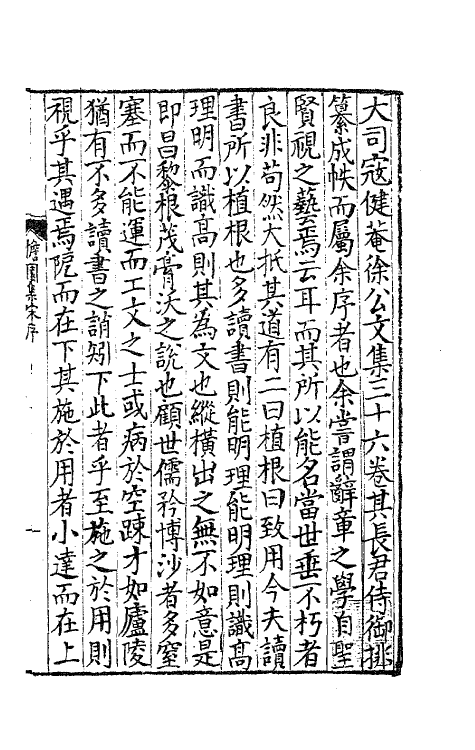 大司寇健菴徐公文集三十六卷其長君侍御排
纂成帙而屬余序者也余嘗謂辭章之學自聖
賢視之藝焉云耳而其所以能名當世垂不朽者
良非苟然大抵其道有二曰植根曰致用今夫讀
書所以植根也多讀書則能明理能明理則識高
理明而識高則其為文也縱橫出之無不如意是
即昌黎根茂膏沃之說也顧世儒矜博涉者多窒
塞而不能運而工文之士或病於空踈才如廬陵
猶有不多讀書之誚矧下此者乎至施之於用則
視乎其遇焉阨而在下其施於用者小達而在上
憺園集宋序
一